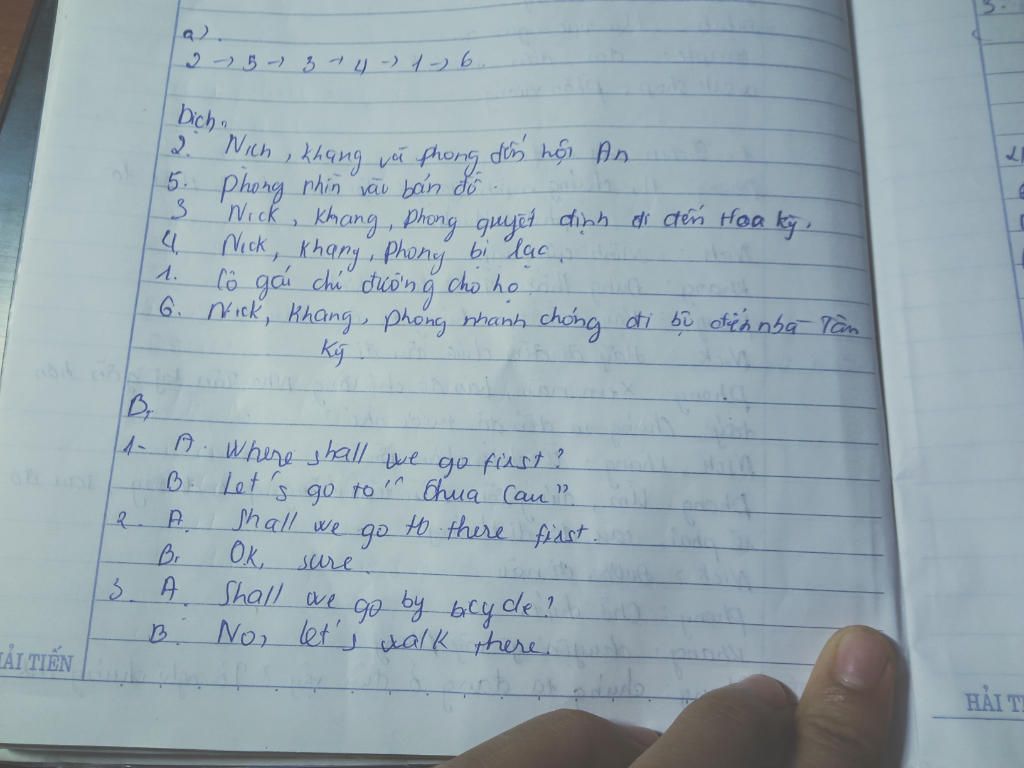 a).
2 → 5 → 3 → 4 → 1 → 6
Dịch:
2. Nich, Khang và phong đến hội An
5. phong nhìn vào bản đồ.
3 Nick, Khang, phong quyết định đi đến Hoa kỳ.
4. Nick, Khang, phong bị lạc.
1. Cô gái chỉ đường cho họ.
6. Nick, Khang, phong nhanh chóng đi bộ đến nhà Tân
Kỳ
B,
1- A. Where shall we go first?
B. Let's go to "Chua Cau"
2. A. Shall we go to there first.
B. OK, sure.
3 A. Shall we go by bicycle?
B. No, let's walk there.
HẢI TIẾN
3.